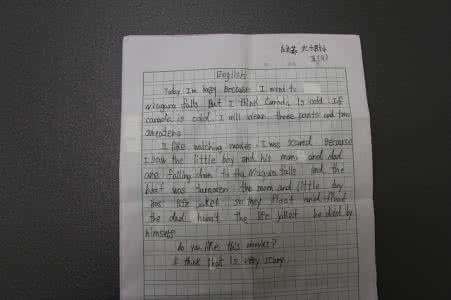 English
Today I'm happy. Because I went to
niagara falls. But I think Canada is cold. If
canada is cold. I will wear three pants and two
sweaters
I like watching movies. I was scared. Because
I saw the little boy and his mom and dad
are falling down to the Niagara falls and the
boat was turnover the mom and little boy
has life jaket so they float and float
the dad hasn't the life jaket he died by
himself
do you like this movies?
I think that is very scary